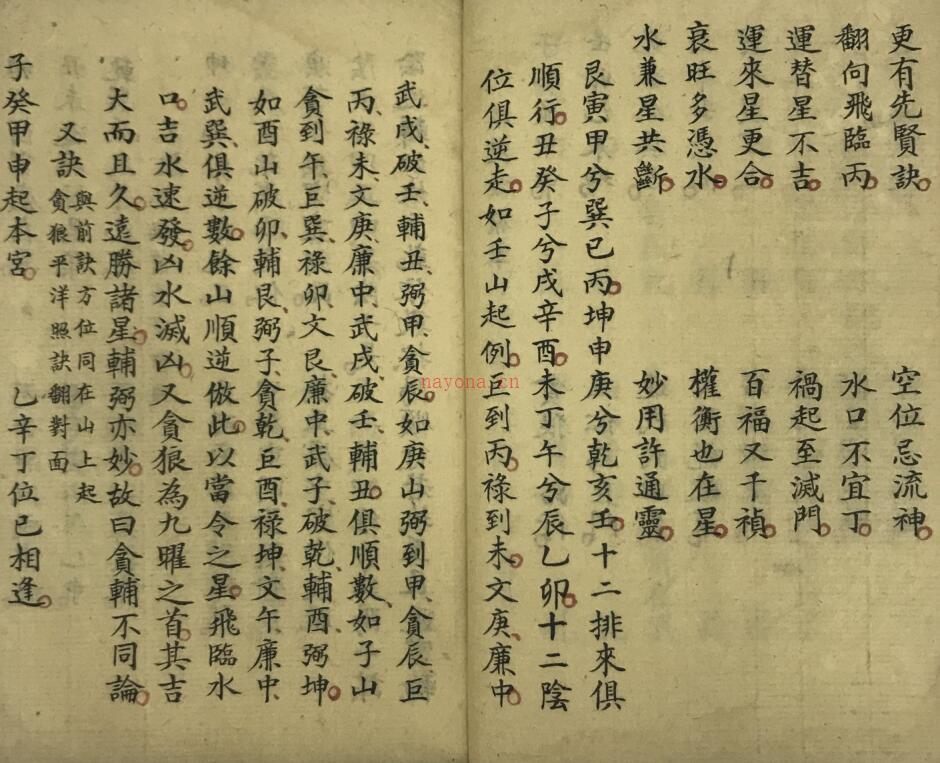 更有先賢訣　空位忌流神
翻向飛臨丙　水口不宜丁
運替星不吉　禍起至滅門
運來星更合　百福又千禎
衰旺多憑水　權衡也在星
水兼星共斷　妙用許通靈
艮寅甲兮巽巳丙坤申庚兮乾亥壬十二排來俱
順行丑癸子兮戌辛酉未丁午兮辰乙卯十二陰
位俱逆走如壬山起例巨到丙祿到未文庚廉中
武戌破壬輔丑弼甲貪辰如庚山弼到甲貪辰巨
丙祿未文庚廉中武戌破壬輔丑俱順數如子山
貪到午巨巽祿卯文艮廉中武子破乾輔酉弼坤
如酉山破卯輔艮弼子貪乾巨酉祿坤文午廉中
武巽俱逆數餘山順逆倣此以當令之星飛臨水
口吉水速發凶水滅凶又貪狼為九曜之首其吉
大而且久遠勝諸星輔弼亦妙故曰貪輔不同論
又訣與前訣方位同在山上起
貪狼平洋照訣翻對面
子癸甲申起本宮　乙辛丁位巳相逢
nayona.cn